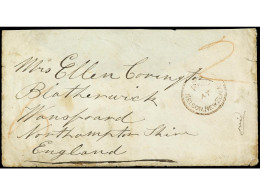 Mrs Ellen Covington
Blatherwick
Wansford
Northampton Shire
England
2